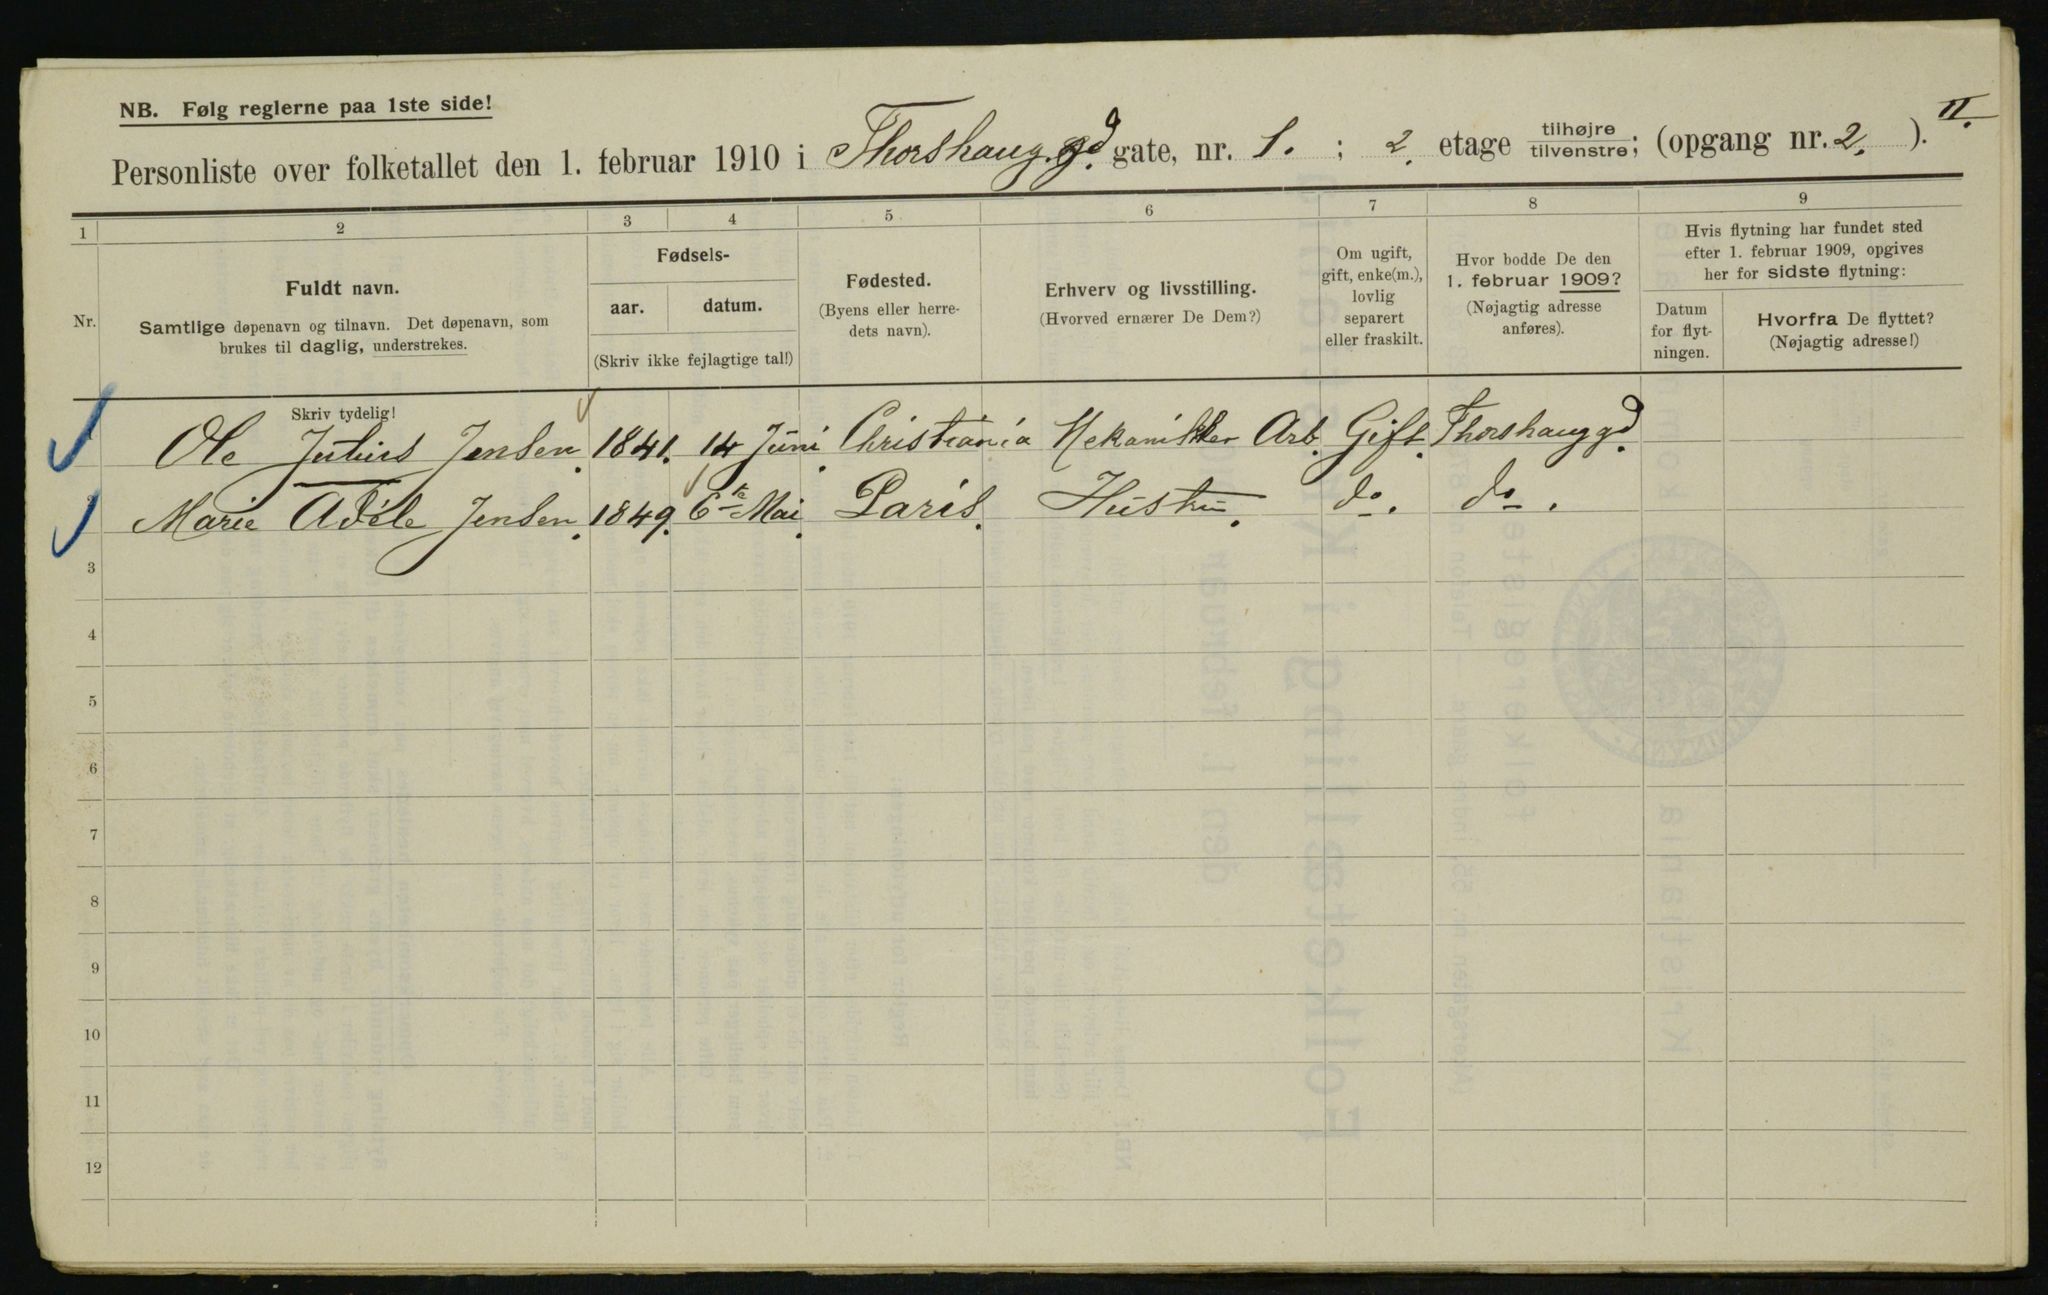 NB. Følg reglerne paa 1ste side!
II.
Personliste over folketallet den 1. februar 1910 i Thorshauggd. gate, nr. 1. ; 2. etage tilhøjre tilvenstre; (opgang nr. 2. ).
1 2 3 4 5 6 7 8 9
Nr.
Fuldt navn.
Samtlige døpenavn og tilnavn. Det døpenavn, som
brukes til daglig, understrekes.
Fødsels-
aar. datum.
(Skriv ikke fejlagtige tal!)
Fødested.
(Byens eller herre-
dets navn).
Erhverv og livsstilling.
(Hvorved ernærer De Dem?)
Om ugift,
gift, enke(m.),
lovlig
separert
eller fraskilt.
Hvor bodde De den
1. februar 1909?
(Nøjagtig adresse
anføres).
Hvis flytning har fundet sted
efter 1. februar 1909, opgives
her for sidste flytning:
Datum
for flyt-
ningen.
Hvorfra De flyttet?
(Nøjagtig adresse!)
Skriv tydelig!
Ole Julius Jensen. 1841. 14 Juni. Christiania Mekanikker Arb. Gift. Thorshauggd.
Marie Adéle Jensen. 1849. 6te Mai. Paris. Hustru. do. do.
3
4
5
6
7
8
9
10
11
12